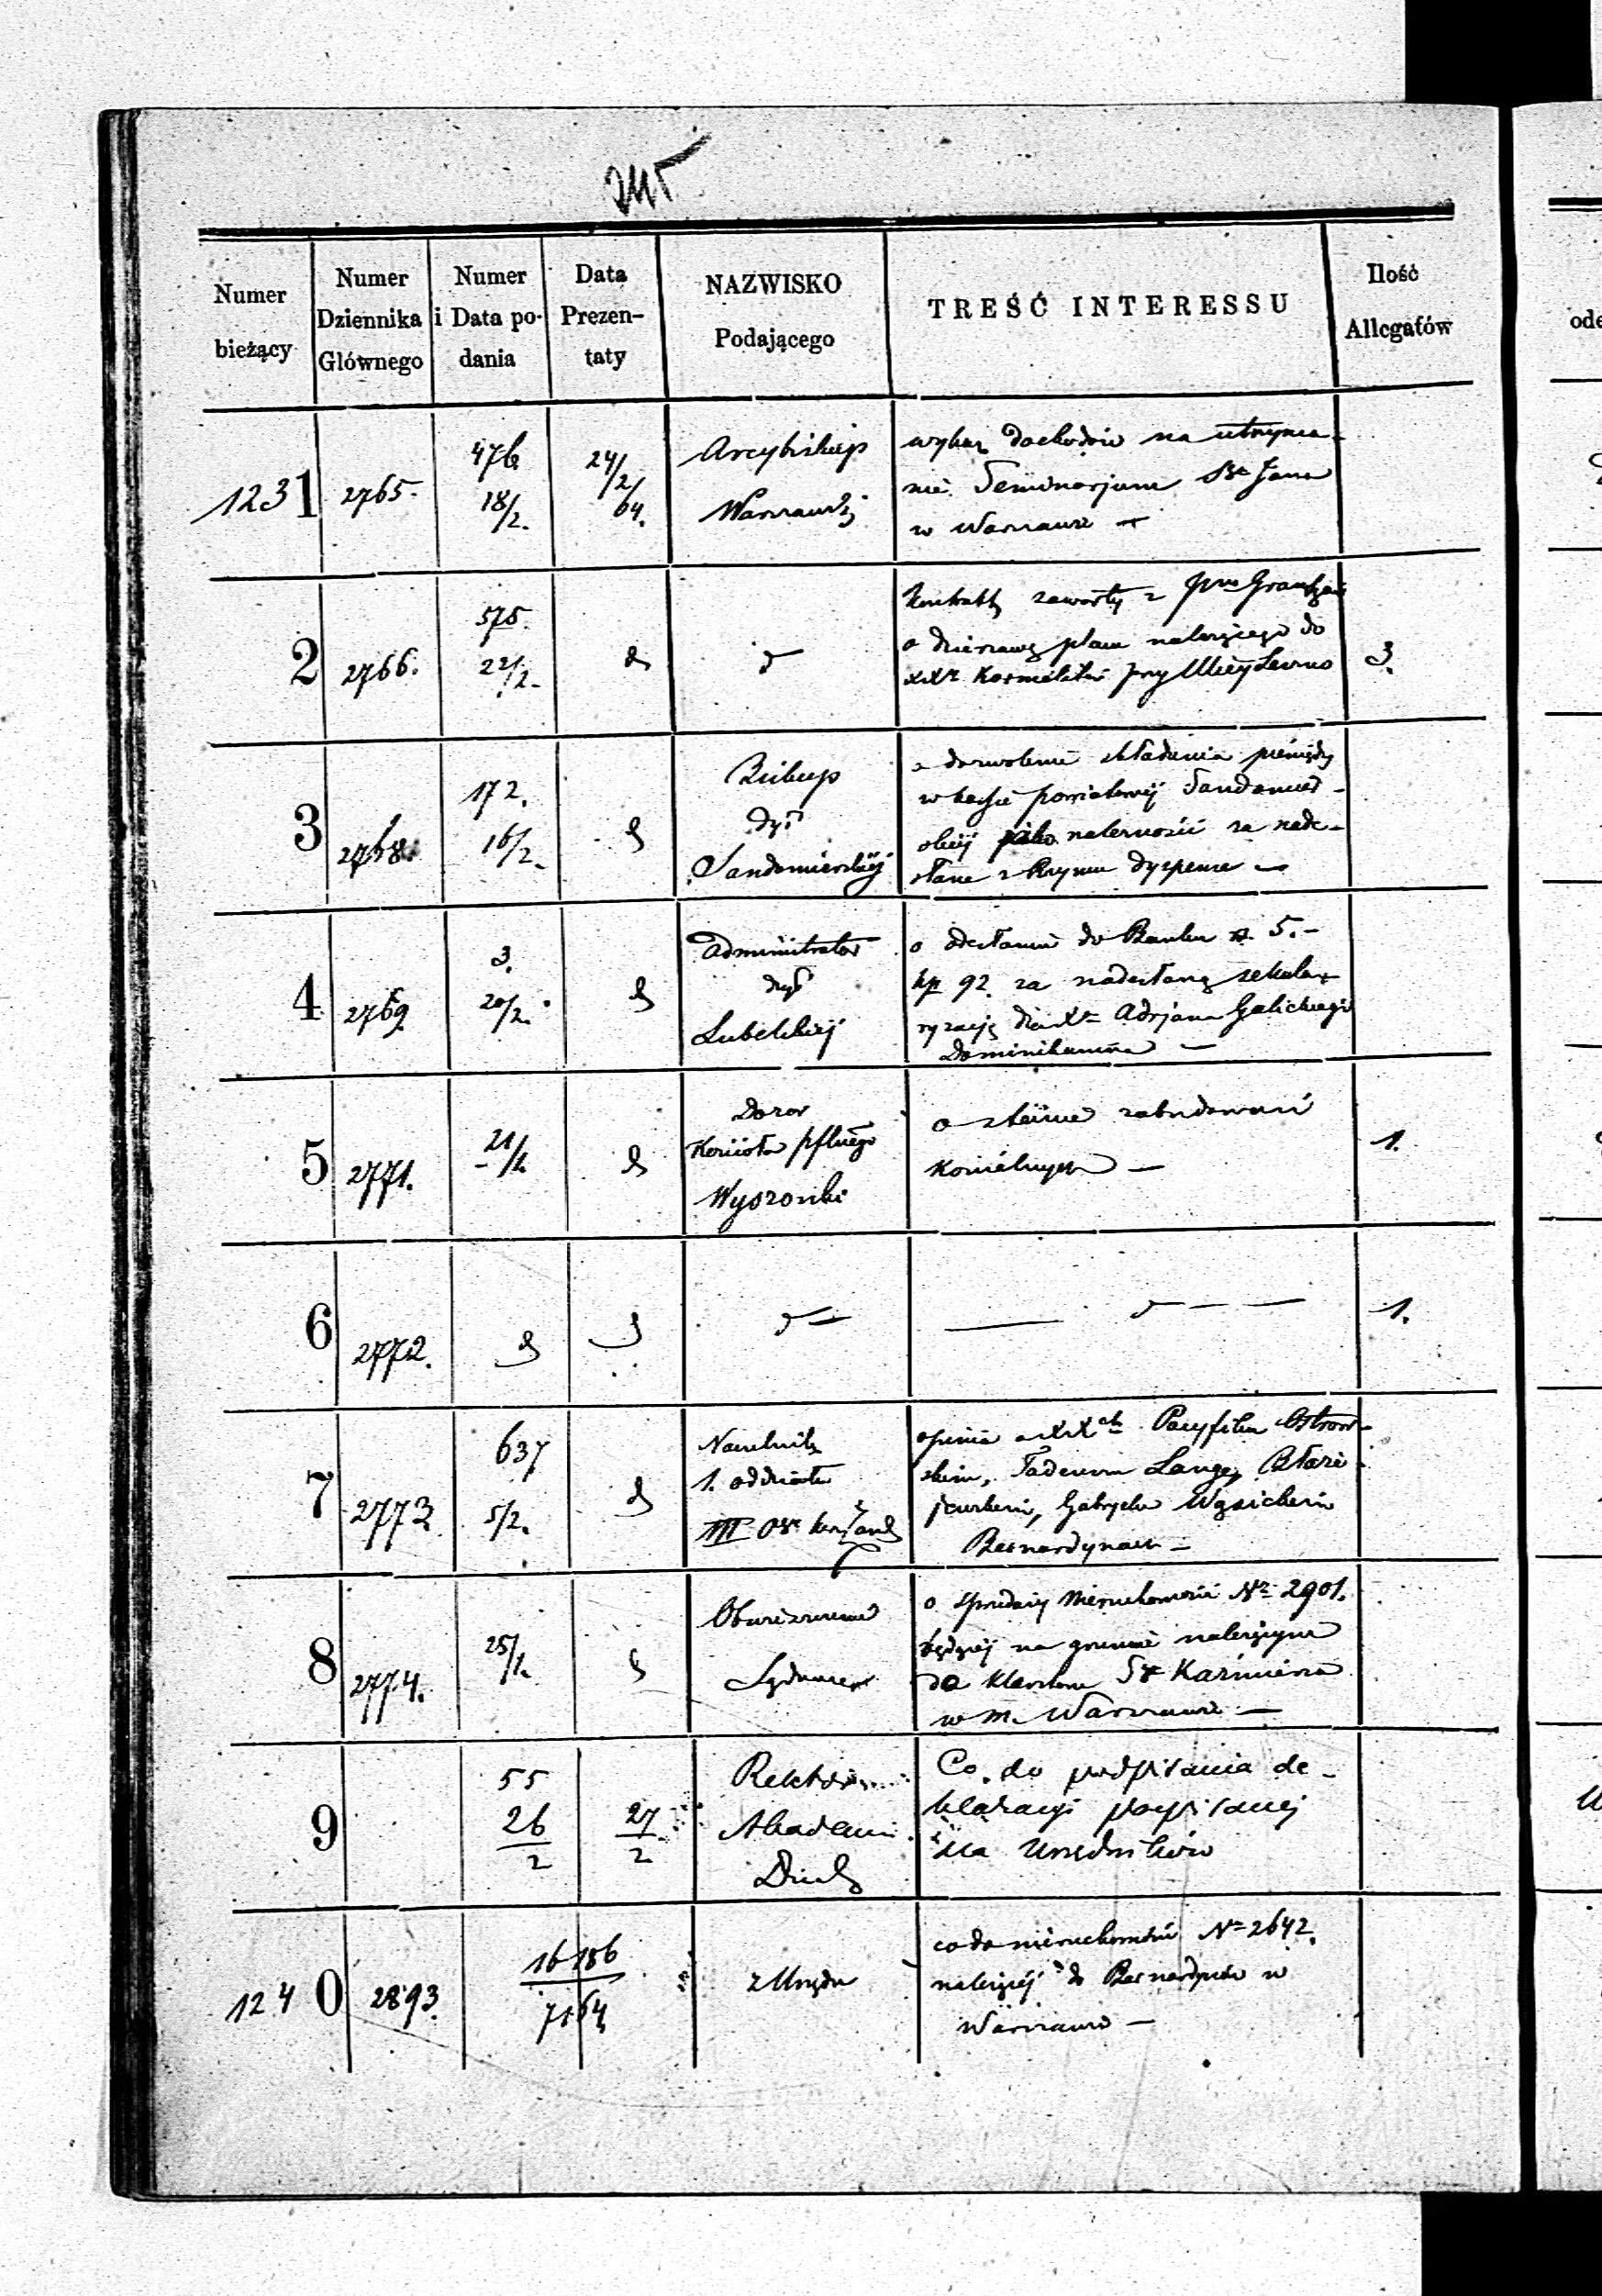 245
Numer bieżący
Numer Dziennika Głównego
Numer i Data podania
Data Prezentaty
NAZWISKO Podającego
TREŚĆ INTERESSU
Ilość Allegatów
1231
2765.
476
18/2.
24/2/64.
Arcybiskup
Warszawski
wykaz dochodów na utrzyma-
nie Seminarjum Sgo Jana
w Warszawie —
2
2766.
575.
22/2.
d
d
Kontrakt zawarty z
o dzierżawę placu należącego do
XXr Karmelitów przy Ulicy Leszno
3.
3
2768.
172.
16/2.
d
Biskup
Dyi
Sandomierskiej
o dozwolenie składania pieniędzy
w kassie powiatowej Sandomier-
skiej jako należności za nade-
słane z Rzymu dyspensa —
4
2769
3.
20/2.
d
Administrator
dyi
Lubelskiej
o odesłaniu do Banku rs. 5.-
kp 92. za nadesłaną sekula-
ryzację dla Xa Adrjana Galickiego
Dominikanina —
5
2771.
21/2
d
Dozor
Kościoła pflnego
Wyszonki
o stanie zabudowań
Kościelnych —
1.
6
2772.
d
d
d —
— d — —
1.
7
2773
637
5/2.
d
Naczelnik
1. oddziału
III
opinia o XXach Pacyfiku Ostrow-
skim, Tadeuszu Lange,
Gabryelu Wąsickim
Bernardynach —
8
2774.
25/2.
d
Obwieszczenie
Sądowe
o sprzedaży Nieruchomości No 2901.
będącej na gruncie należącym
do Klasztoru Sgo Kazimierza
w m. Warszawie —
9
55
26
2
27
2
Rektor
Akademii
Duch
Co do podpisania de-
klaracyi przepisanej
dla Urzędników
1240
2893.
16186
7164
z Urzędu
co do nieruchomości No 2642.
należącej do Bernardynów w
Warszawie —